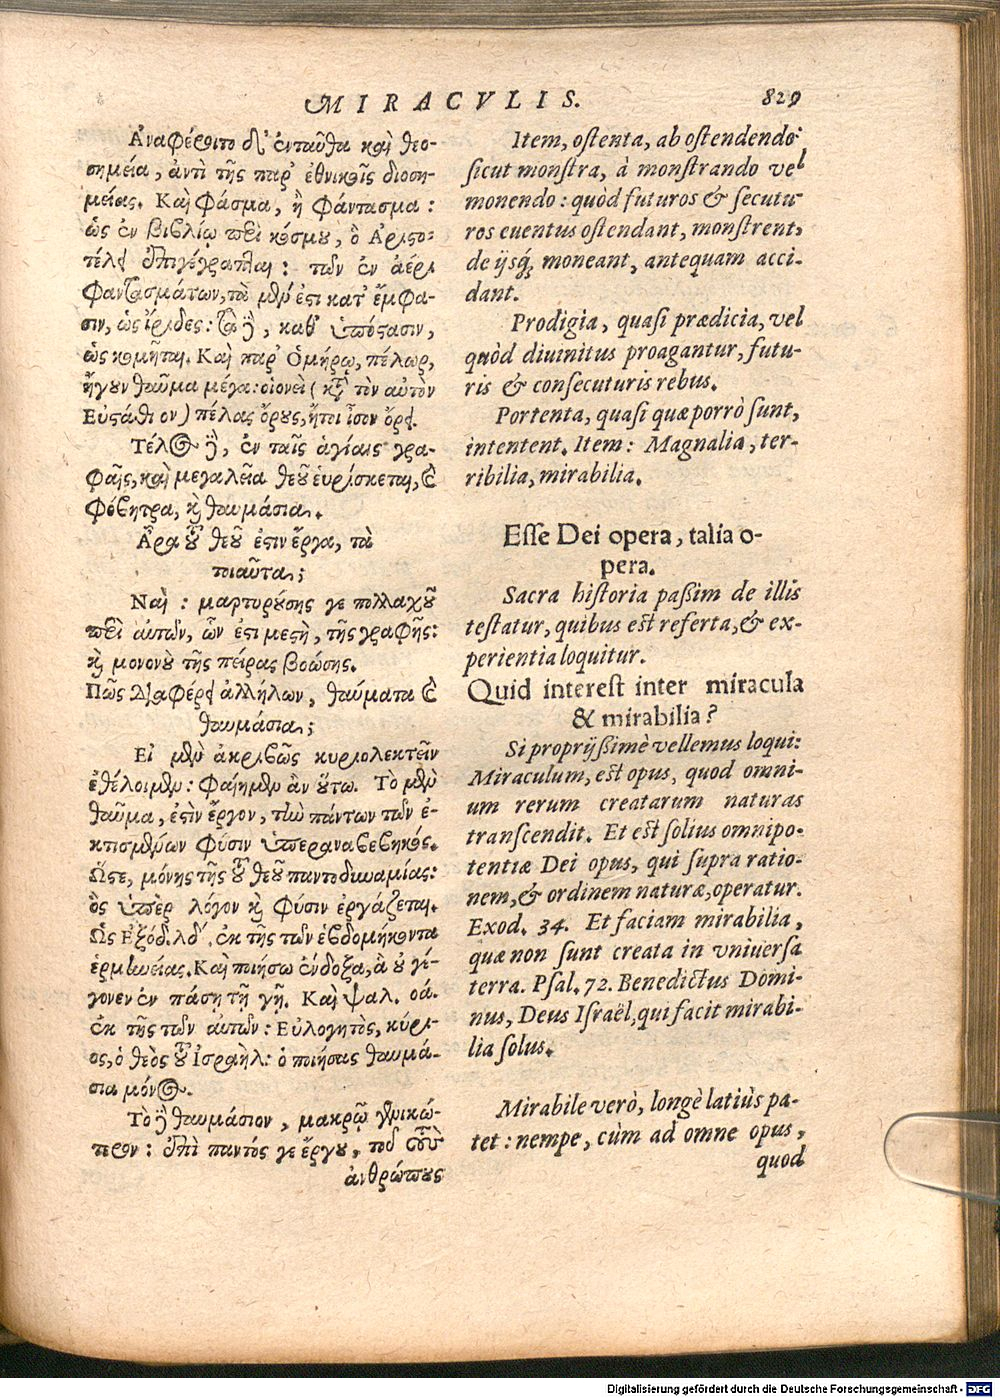 MIRACVLIS. 829
Ἀναφέροιτο δ' ἐνταῦθα καὶ θεο-
σημεία, ἀντὶ τῆς παρ' ἐθνικοῖς διοση-
μείας. Καὶ φάσμα, ἢ φάντασμα:
ὡς ἐν βιβλίῳ περὶ κόσμου, ὃ Ἀριστο-
τέλει ἐπιγέγραπται: τῶν ἐν ἀέρι
φαντασμάτων, τὰ μέν ἐστι κατ' ἔμφα-
σιν, ὡς ἴριδες: τὰ δὲ, καθ' ὑπόστασιν,
ὡς κομῆται. Καὶ παρ' Ὁμήρῳ, πέλωρ,
ἤγουν θαῦμα μέγα: οἱονεὶ (κατὰ τὸν αὐτὸν
Εὐστάθιον) πέλας ὄρους, ἤτοι ἶσον ὄρει.
Τέλος δὲ, ἐν ταῖς ἁγίαις γρα-
φαῖς, καὶ μεγαλεῖα θεοῦ εὑρίσκεται, καὶ
φόβητρα, καὶ θαυμάσια.
Ἆρα τοῦ θεοῦ ἐστιν ἔργα, τὰ
τοιαῦτα;
Ναὶ: μαρτυρούσης γε πολλαχοῦ
περὶ αὐτῶν, ὧν ἐστι μεστὴ, τῆς γραφῆς:
καὶ μονονοὺ τῆς πείρας βοώσης.
Πῶς διαφέρει ἀλλήλων, θαύματα καὶ
θαυμάσια;
Εἰ μὲν ἀκριβῶς κυριολεκτεῖν
ἐθέλοιμεν: φαίημεν ἂν οὕτω. Τὸ μὲν
θαῦμα, ἐστὶν ἔργον, τὴν πάντων τῶν ἐ-
κτισμένων φύσιν ὑπεραναβεβηκός.
Ὥστε, μόνης τῆς τοῦ θεοῦ παντοδυναμίας:
ὃς ὑπὲρ λόγον καὶ φύσιν ἐργάζεται.
Ὡς Ἐξόδ. λδ'. ἐκ τῆς τῶν ἑβδομήκοντα
ἑρμηνείας. Καὶ ποιήσω ἔνδοξα, ἃ οὐ γέ-
γονεν ἐν πάσῃ τῇ γῇ. Καὶ ψαλ. οά.
ἐκ τῆς τῶν αὐτῶν: Εὐλογητὸς, κύρι-
ος, ὁ θεὸς τοῦ Ἰσραὴλ: ὁ ποιήσας θαυμά-
σια μόνος.
Τὸ δὲ θαυμάσιον, μακρῷ γενικώ-
τερον: ἐπὶ παντός γε ἔργου, πρὸς τοὺς
ἀνθρώπους
Item, ostenta, ab ostendendo:
sicut monstra, à monstrando vel
monendo: quòd futuros & secutu-
ros euentus ostendant, monstrent,
de ijsq́; moneant, antequam acci-
dant.
Prodigia, quasi prædicia, vel
quòd diuinitus proagantur, futu-
ris & consecuturis rebus.
Portenta, quasi quæ porrò sunt,
intentent. Item: Magnalia, ter-
ribilia, mirabilia.
Esse Dei opera, talia o-
pera.
Sacra historia passim de illis
testatur, quibus est referta, & ex-
perientia loquitur.
Quid interest inter miracula
& mirabilia?
Si proprijssimè vellemus loqui:
Miraculum, est opus, quod omni-
um rerum creatarum naturas
transcendit. Et est solius omnipo-
tentiæ Dei opus, qui supra ratio-
nem, & ordinem naturæ, operatur.
Exod. 34. Et faciam mirabilia,
quæ non sunt creata in vniuersa
terra. Psal. 72. Benedictus Domi-
nus, Deus Israël, qui facit mirabi-
lia solus.
Mirabile verò, longè latiùs pa-
tet: nempe, cùm ad omne opus,
quod
Digitalisierung gefördert durch die Deutsche Forschungsgemeinschaft - DFG